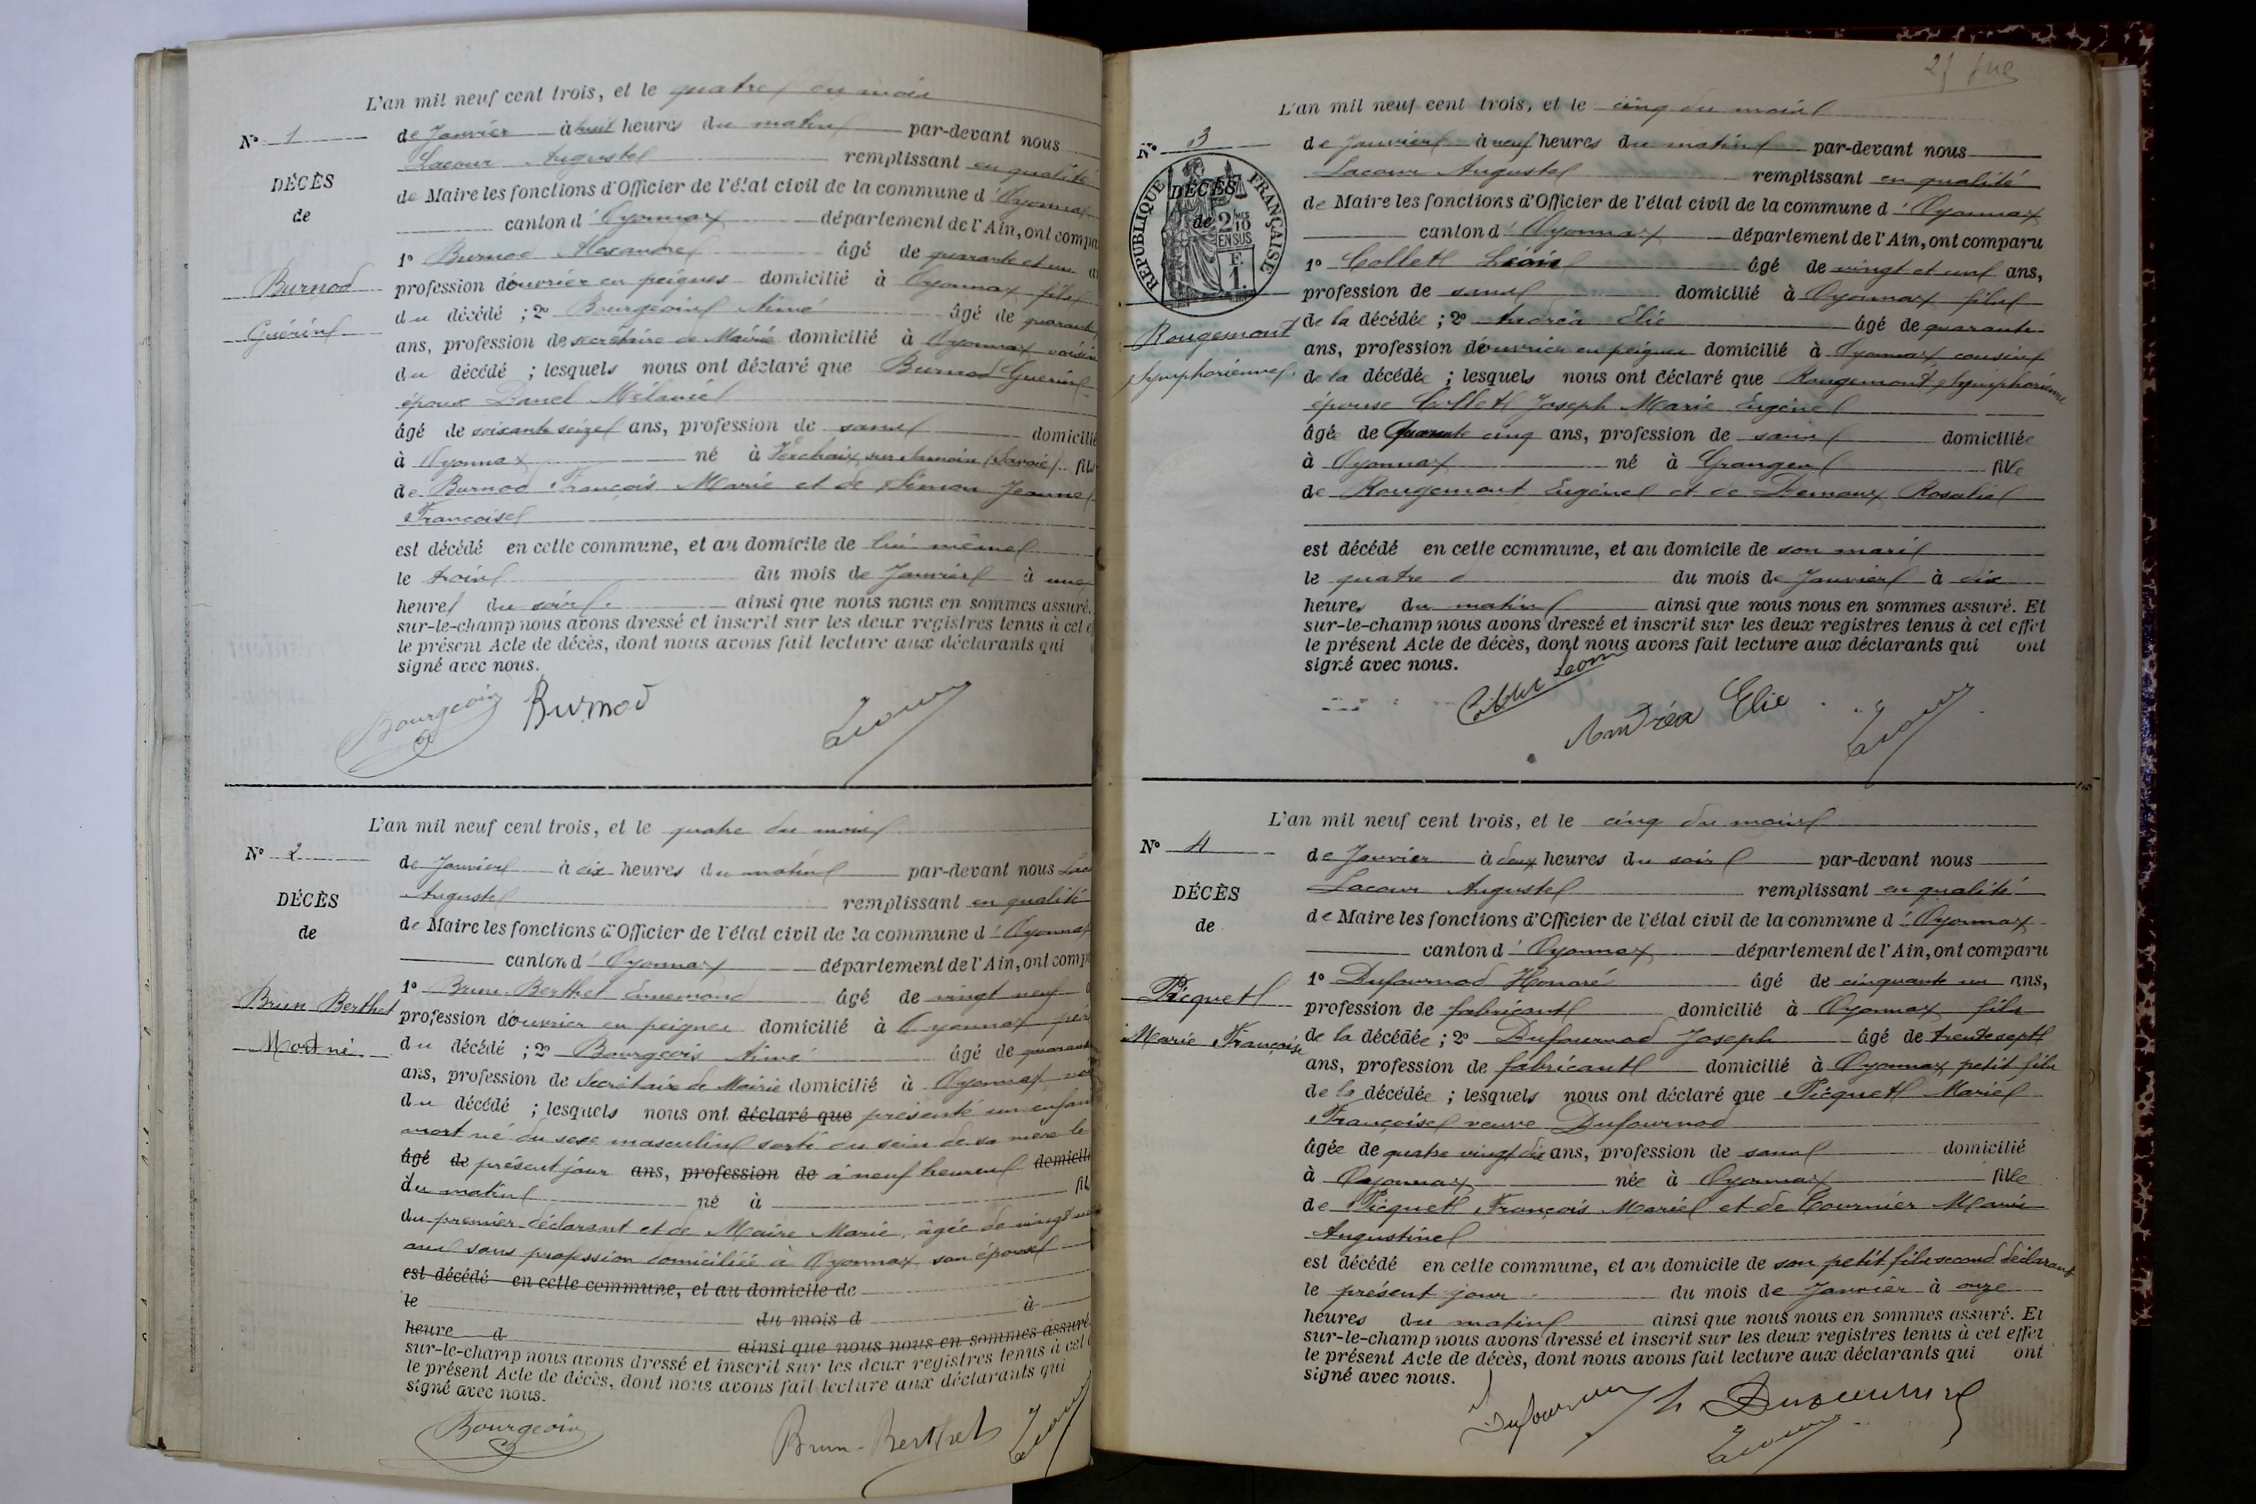 L'an mil neuf cent trois, et le quatre du mois
N° 1
de Janvier à huit heures du matin par-devant nous
Lacour Auguste remplissant en qualité
DÉCÈS
de Maire les fonctions d'Officier de l'état civil de la commune d'Oyonnax
de
canton d'Oyonnax département de l'Ain, ont compa
1° Burnod Alexandre âgé de quarante et un
Burnod
profession d'ouvrier en peignes domicilié à Oyonnax fils
du décédé ; 2° Bourgeois Aimé âgé de quarante
Guérin
ans, profession de secrétaire de Mairie domicilié à Oyonnax voisin
du décédé ; lesquels nous ont déclaré que Burnod Guérin
époux Mélanie
âgé de soixante seize ans, profession de sans domicilié
à Oyonnax né à (Savoie) fils
de Burnod François Marie et de Simon Jeanne
Françoise
est décédé en cette commune, et au domicile de lui même
le trois du mois de Janvier à une
heure du soir ainsi que nous nous en sommes assuré.
sur-le-champ nous avons dressé et inscrit sur les deux registres tenus à cet e
le présent Acte de décès, dont nous avons fait lecture aux déclarants qui
signé avec nous.
Bourgeois Burnod Lacour
L'an mil neuf cent trois, et le quatre du mois
N° 2
de Janvier à dix heures du matin par-devant nous Lac
Auguste remplissant en qualité
DÉCÈS
de Maire les fonctions d'Officier de l'état civil de la commune d'Oyonnax
de
canton d'Oyonnax département de l'Ain, ont comp
1° Brun-Berthet Ennemond âgé de vingt neuf
Brun Berthet
profession d'ouvrier en peignes domicilié à Oyonnax père
du décédé ; 2° Bourgeois Aimé âgé de quarante
Mort né
ans, profession de Secrétaire de Mairie domicilié à Oyonnax voi
du décédé ; lesquels nous ont déclaré que présenté un enfan
mort né du sexe masculin sorti du sein de sa mère le
âgé de présent jour ans, profession de à neuf heures domicili
du matin né à fil
du premier déclarant et de Maire Marie, âgée de vingt
ans sans profession domiciliée à Oyonnax son épouse
est décédé en cette commune, et au domicile de
le du mois d à
heure d ainsi que nous nous en sommes assuré
sur-le-champ nous avons dressé et inscrit sur les deux registres tenus à cet
le présent Acte de décès, dont nous avons fait lecture aux déclarants qui
signé avec nous.
Bourgeois Brun-Berthet Lacour
L'an mil neuf cent trois, et le cinq du mois
N° 3
de Janvier à neuf heures du matin par-devant nous
Lacour Auguste remplissant en qualité
RÉPUBLIQUE FRANÇAISE
DÉCÈS
2/10
EN SUS
de Maire les fonctions d'Officier de l'état civil de la commune d'Oyonnax
de
canton d'Oyonnax département de l'Ain, ont comparu
1° Collet Léon âgé de vingt et un ans,
profession de sans domicilié à Oyonnax fils
Rougemont
de la décédée ; 2° Andréa Elie âgé de quarante
ans, profession d'ouvrier en peignes domicilié à Oyonnax cousin
Symphorienne
de la décédée ; lesquels nous ont déclaré que Rougemont Symphorienne
épouse Collet Joseph Marie Eugène
âgée de Quarante cinq ans, profession de sans domiciliée
à Oyonnax né à Granges fille
de Rougemont Eugène et de Rosalie
est décédé en cette commune, et au domicile de son mari
le quatre d du mois de Janvier à dix
heures du matin ainsi que nous nous en sommes assuré. Et
sur-le-champ nous avons dressé et inscrit sur les deux registres tenus à cet effet
le présent Acte de décès, dont nous avons fait lecture aux déclarants qui ont
signé avec nous.
Collet Léon
Andréa Elie Lacour
L'an mil neuf cent trois, et le cinq du mois
N° 4
de Janvier à deux heures du soir par-devant nous
Lacour Auguste remplissant en qualité
DÉCÈS
de Maire les fonctions d'Officier de l'état civil de la commune d'Oyonnax
de
canton d'Oyonnax département de l'Ain, ont comparu
1° Dufournod Honoré âgé de cinquante un ans,
Picquet
profession de fabricant domicilié à Oyonnax fils
Marie Françoise
de la décédée ; 2° Dufournod Joseph âgé de trente sept
ans, profession de fabricant domicilié à Oyonnax petit fils
de la décédée ; lesquels nous ont déclaré que Picquet Marie
Françoise veuve Dufournod
âgée de quatre vingt dix ans, profession de sans domicilié
à Oyonnax née à Oyonnax fille
de Picquet François Marie et de Tournier Marie
Augustine
est décédé en cette commune, et au domicile de son petit fils second déclarant
le présent jour du mois de Janvier à onze
heures du matin ainsi que nous nous en sommes assuré. Et
sur-le-champ nous avons dressé et inscrit sur les deux registres tenus à cet effet
le présent Acte de décès, dont nous avons fait lecture aux déclarants qui ont
signé avec nous.
Dufournod h Dufournod
Lacour